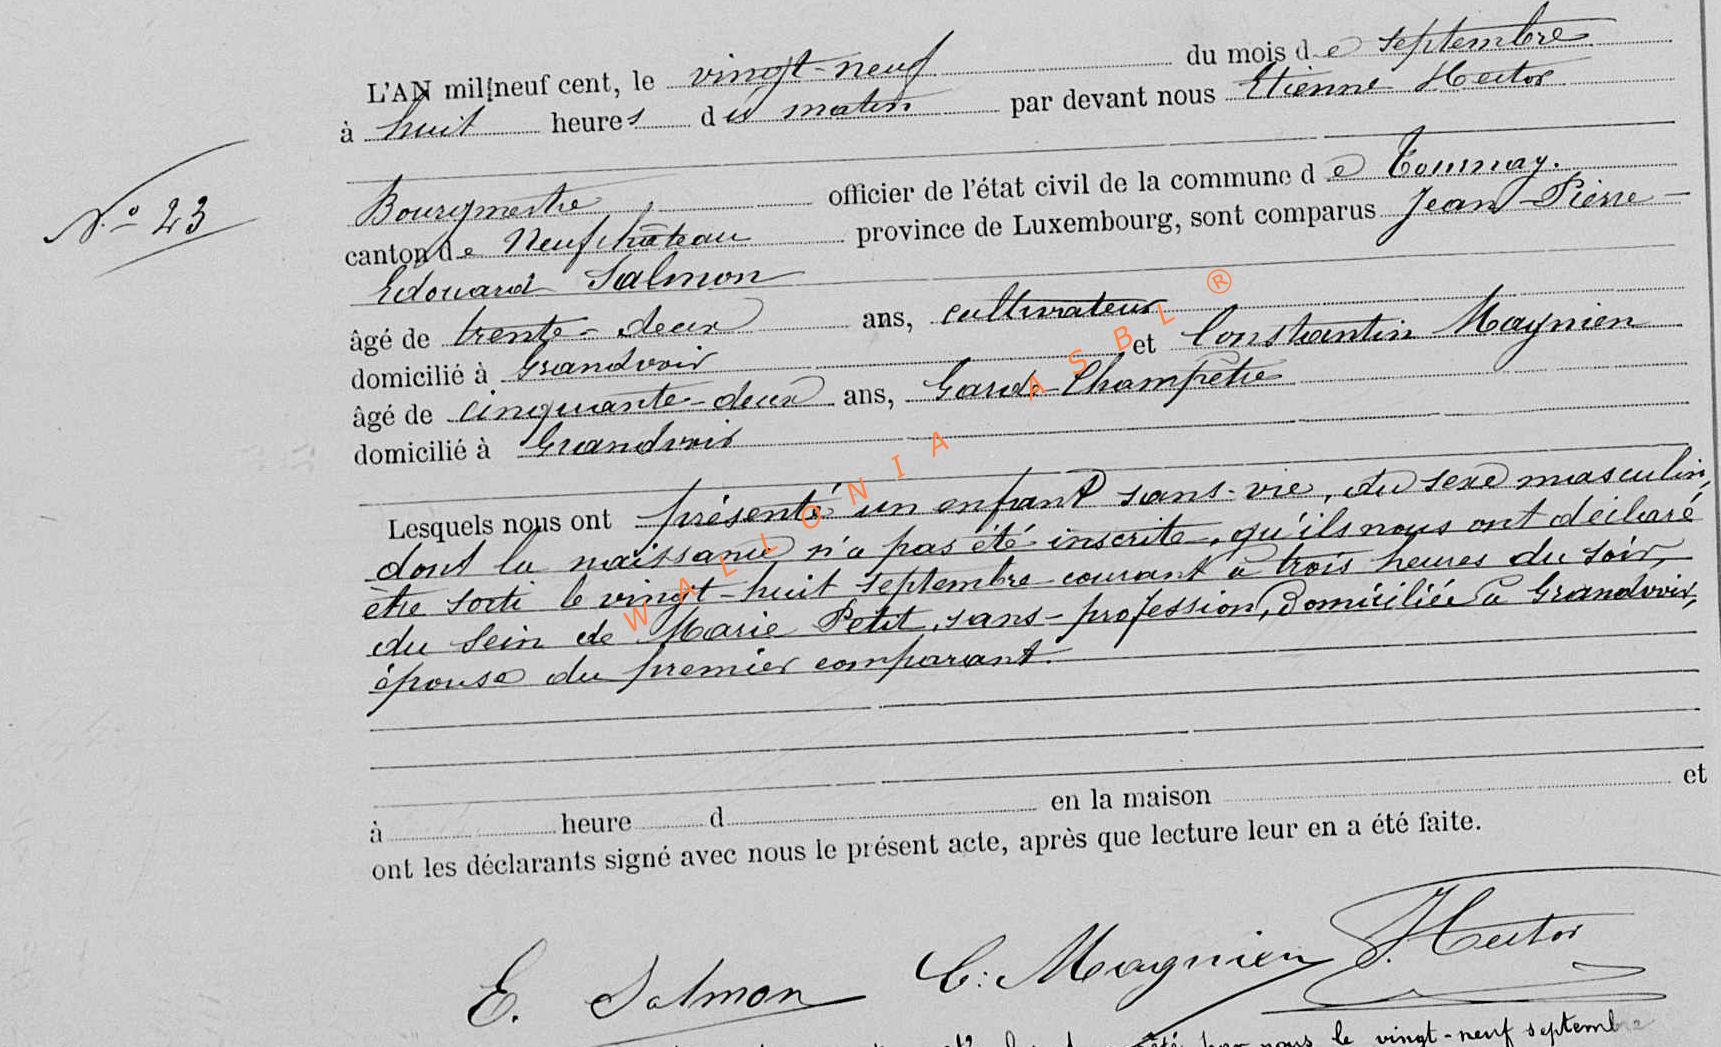 L'AN mil neuf cent, le vingt-neuf du mois de septembre
à huit heures du matin par devant nous Etienne Hector
Bourgmestre officier de l'état civil de la commune de Tournay.
N° 23
canton de Neufchâteau province de Luxembourg, sont comparus Jean-Pierre-
Edouard Salmon
âgé de trente-deux ans, cultivateur
domicilié à Grandvoir et Constantin Magnien
âgé de cinquante-deux ans, Garde-Champêtre
domicilié à Grandvoir
Lesquels nous ont présenté un enfant sans-vie, du sexe masculin,
dont la naissance n'a pas été inscrite, qu'ils nous ont déclaré
être sorti le vingt-huit septembre courant à trois heures du soir,
du sein de Marie Petit, sans-profession, Domiciliée à Grandvoir,
épouse du premier comparant.
à heure d en la maison et
ont les déclarants signé avec nous le présent acte, après que lecture leur en a été faite.
E. Salmon C. Magnien Hector
par nous le vingt-neuf septembre
WALLONIA ASBL ®